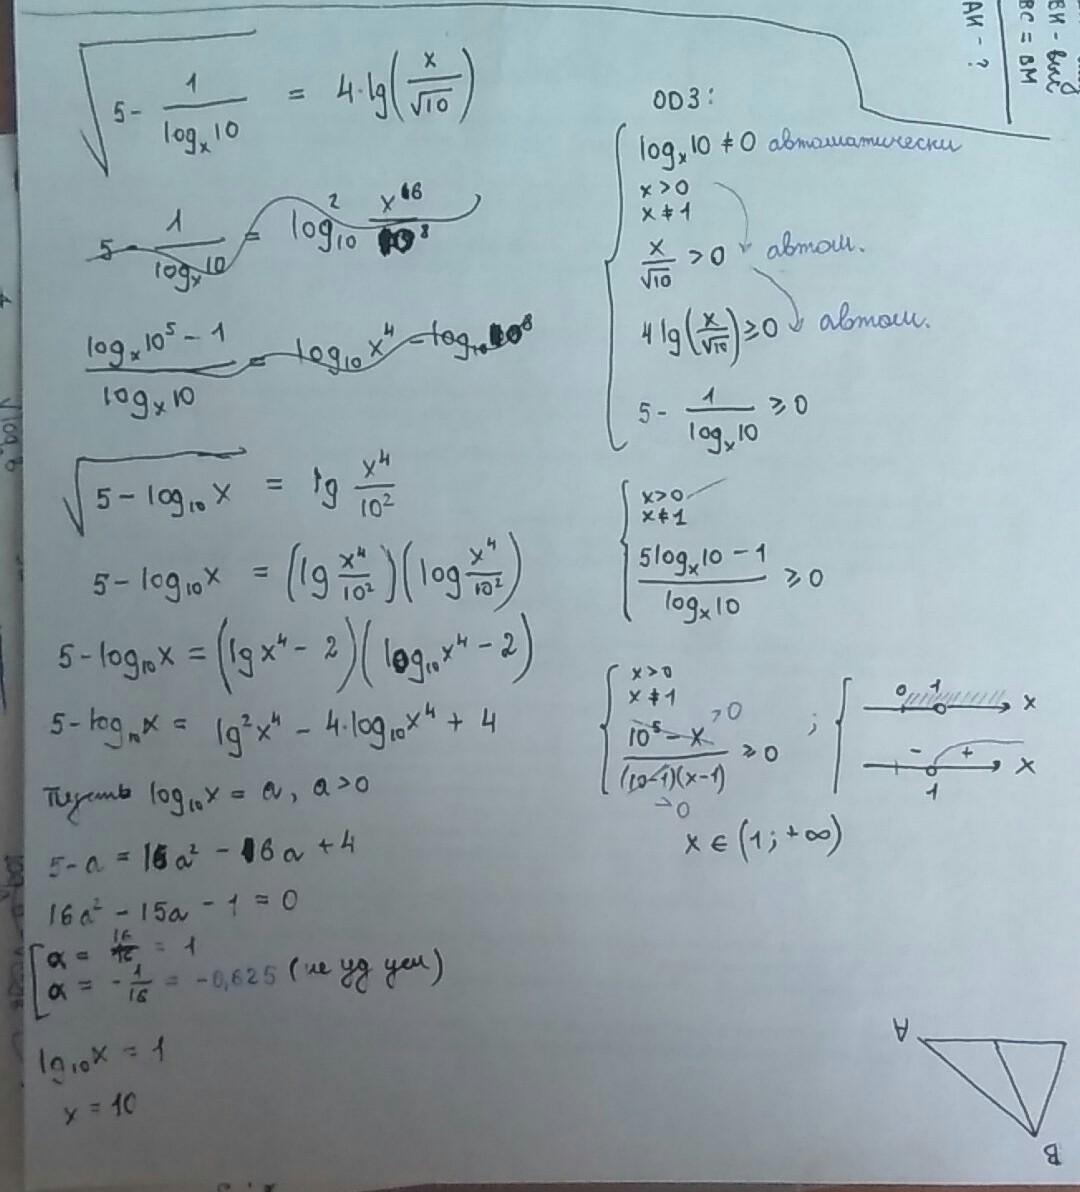 √(5 - 1/log_x 10) = 4·lg(x/√10)
5 - 1/log_x 10 = log²_10 x^16/10^8
(log_x 10^5 - 1)/log_x 10 = log_10 x^4 - log_10 10^8
√(5 - log_10 x) = lg x^4/10^2
5 - log_10 x = (lg x^4/10^2)(log x^4/10^2)
5 - log_10 x = (lg x^4 - 2)(log_10 x^4 - 2)
5 - log_10 x = lg² x^4 - 4·log_10 x^4 + 4
Пусть log_10 x = a, a > 0
5 - a = 16a² - 16a + 4
16a² - 15a - 1 = 0
[ a = 16/16 = 1
a = -1/16 = -0,625 (не уд усл)
lg_10 x = 1
x = 10
ОДЗ:
{ log_x 10 ≠ 0 автоматически
x > 0
x ≠ 1
x/√10 > 0 автом.
4 lg(x/√10) ≥ 0 автом.
5 - 1/log_x 10 ≥ 0
{ x > 0
x ≠ 1
(5 log_x 10 - 1)/log_x 10 ≥ 0
{ x > 0
x ≠ 1
(10^5 - x)/((10-1)(x-1)) ≥ 0
> 0
> 0
; {
0 1 x
- + x
1
x ∈ (1; +∞)
BC = BM
AK - ?
A
B